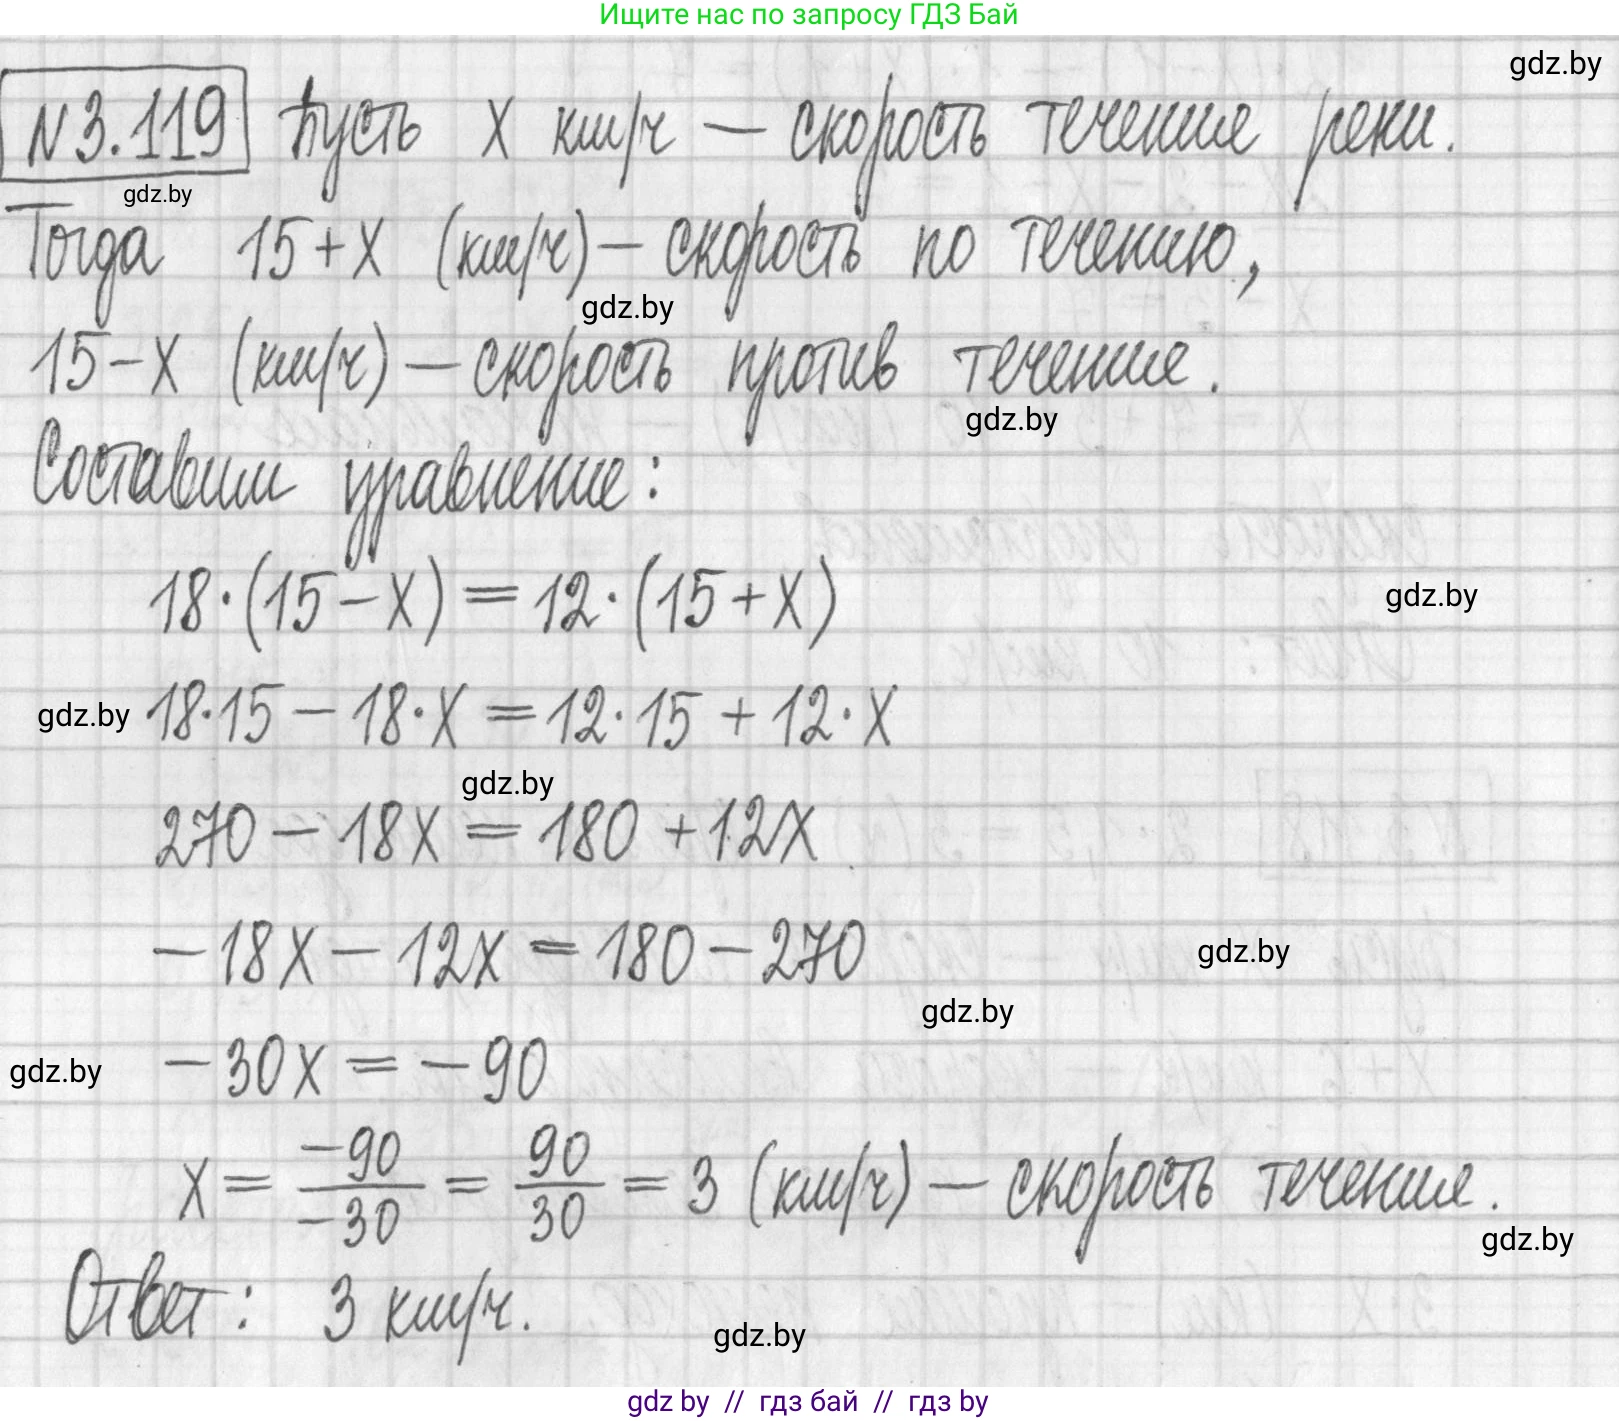 Ищите нас по запросу ГДЗ Бай
gdz.by
№3.119 Пусть x км/ч — скорость течения реки.
gdz.by
Тогда 15+x (км/ч) — скорость по течению,
gdz.by
15-x (км/ч) — скорость против течения.
gdz.by
Составим уравнение:
18·(15-x) = 12·(15+x)
gdz.by
gdz.by 18·15 - 18·x = 12·15 + 12·x
gdz.by
270 - 18x = 180 + 12x
-18x - 12x = 180 - 270
gdz.by
gdz.by
-30x = -90
gdz.by
x = -90/-30 = 90/30 = 3 (км/ч) — скорость течения.
gdz.by
Ответ: 3 км/ч.
gdz.by
gdz by // гдз бай // гдз by